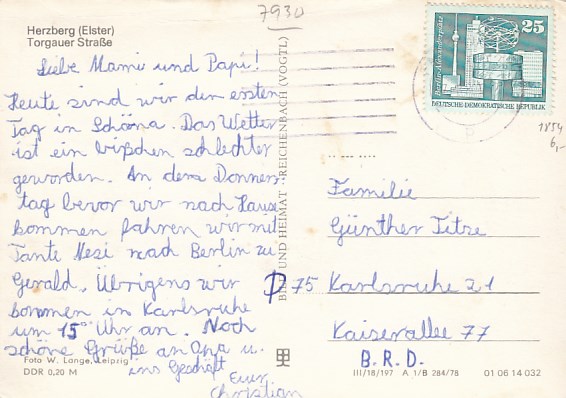 7930
Herzberg (Elster)
Torgauer Straße
Liebe Mami und Papi!
Heute sind wir den ersten
Tag in Schöna. Das Wetter
ist ein bißchen schlechter
geworden. An dem Donners
tag bevor wir nach Hause
kommen fahren wir mit
Tante Resi nach Berlin zu
Gerald, Übrigens wir
kommen in Karlsruhe
um 15°° Uhr an. Noch
schöne Grüße an Opa u.
ins Geschäft
Euer
Christian
Foto W. Lange, Leipzig
DDR 0,20 M
BILD UND HEIMAT REICHENBACH (VOGTL)
25
Berlin-Alexanderplatz
DEUTSCHE DEMOKRATISCHE REPUBLIK
1854
6,-
Familie
Günther Titze
D 75 Karlsruhe 21
Kaiserallee 77
B.R.D.
III/18/197 A 1/B 284/78 01 06 14 032